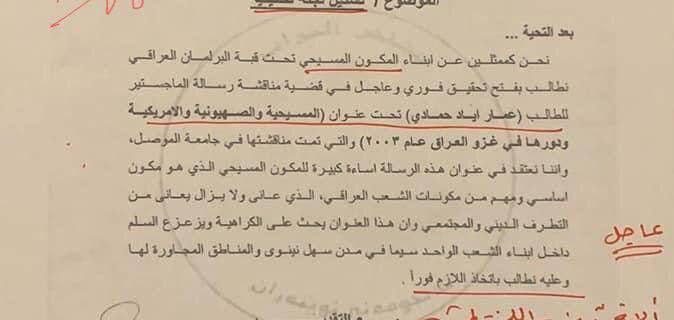 الموضوع / تشكيل لجنة تحقيقية
بعد التحية ...
نحن كممثلين عن ابناء المكون المسيحي تحت قبة البرلمان العراقي
نطالب بفتح تحقيق فوري وعاجل في قضية مناقشة رسالة الماجستير
للطالب (عمار اياد حمادي) تحت عنوان (المسيحية والصهيونية والامريكية
ودورها في غزو العراق عام ٢٠٠٣) والتي تمت مناقشتها في جامعة الموصل،
واننا نعتقد في عنوان هذه الرسالة اساءة كبيرة للمكون المسيحي الذي هو مكون
اساسي ومهم من مكونات الشعب العراقي، الذي عانى ولا يزال يعانى من
التطرف الديني والمجتمعي وان هذا العنوان يحث على الكراهية ويزعزع السلم
داخل ابناء الشعب الواحد سيما في مدن سهل نينوى والمناطق المجاورة لها
عاجل
وعليه نطالب باتخاذ اللازم فوراً .